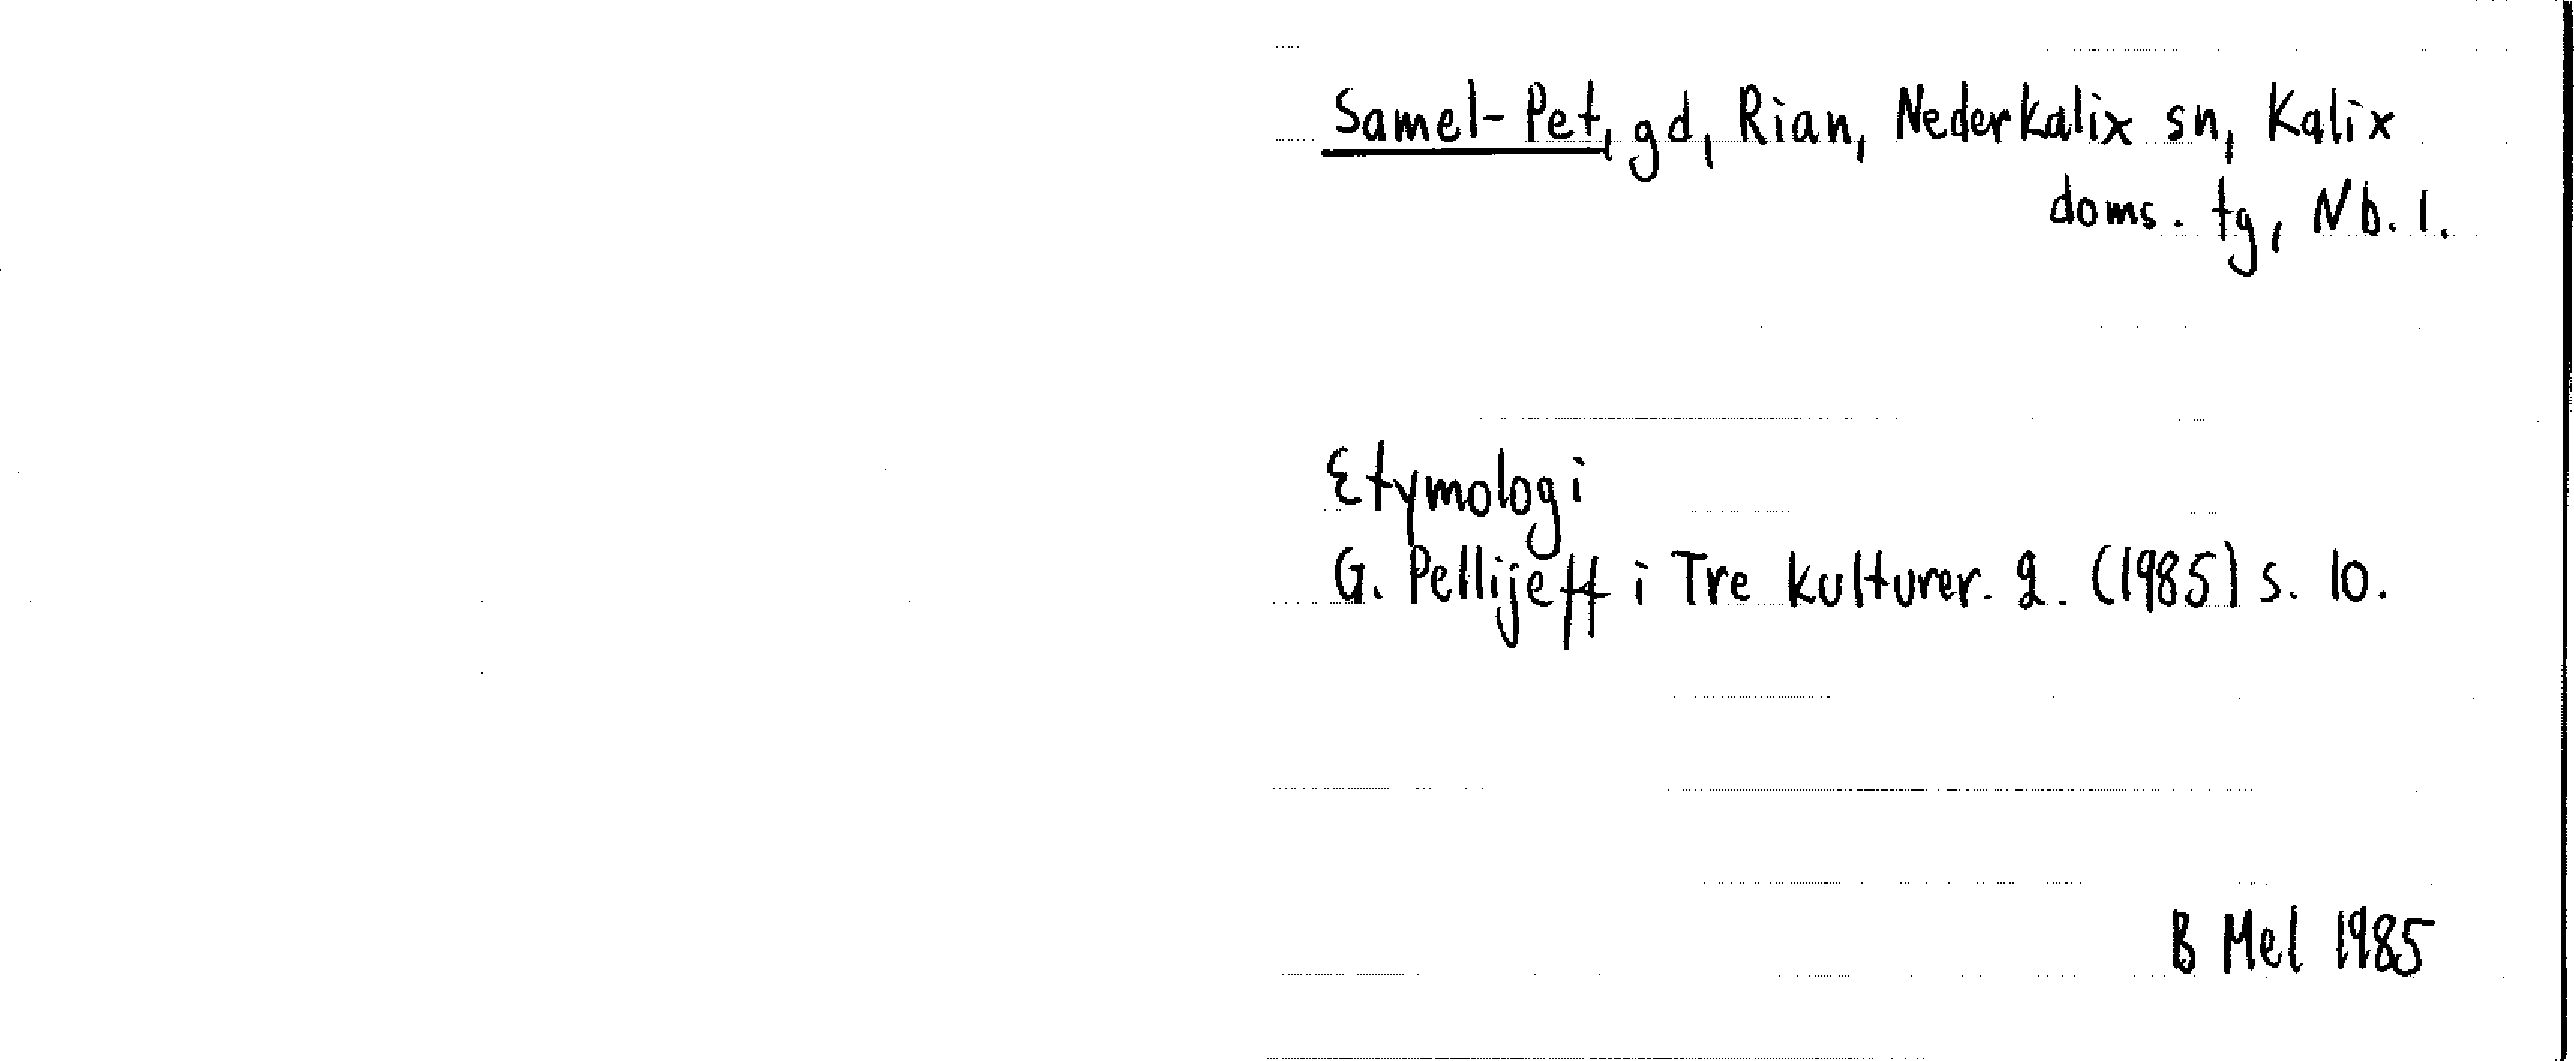 Samel-Pet, gd, Rian, Nederkalix sn, Kalix
doms. tg, Nb. l.
Etymologi
G. Pellijeff i Tre kulturer. 2. (1985) s. 10.
B Mel 1985